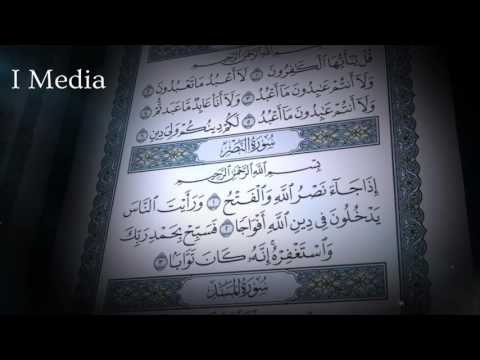 I Media
بِسْمِ اللَّهِ الرَّحْمَٰنِ الرَّحِيمِ
قُلْ يَٰٓأَيُّهَا الْكَٰفِرُونَ ۝ لَآ أَعْبُدُ مَا تَعْبُدُونَ ۝
وَلَآ أَنتُمْ عَٰبِدُونَ مَآ أَعْبُدُ ۝ وَلَآ أَنَا۠ عَابِدٌ مَّا عَبَدتُّمْ ۝
وَلَآ أَنتُمْ عَٰبِدُونَ مَآ أَعْبُدُ ۝ لَكُمْ دِينُكُمْ وَلِيَ دِينِ ۝
سُورَةُ النَّصْرِ
بِسْمِ اللَّهِ الرَّحْمَٰنِ الرَّحِيمِ
إِذَا جَآءَ نَصْرُ اللَّهِ وَالْفَتْحُ ۝ وَرَأَيْتَ النَّاسَ
يَدْخُلُونَ فِي دِينِ اللَّهِ أَفْوَاجًا ۝ فَسَبِّحْ بِحَمْدِ رَبِّكَ
وَاسْتَغْفِرْهُ ۚ إِنَّهُ كَانَ تَوَّابًا ۝
سُورَةُ الْمَسَدِ